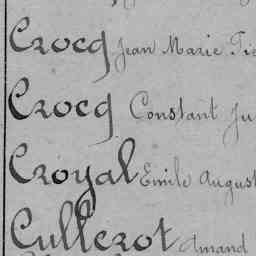 Crocq Jean Marie
Crocq Constant
Croyal Emile August
Cullerot Amand